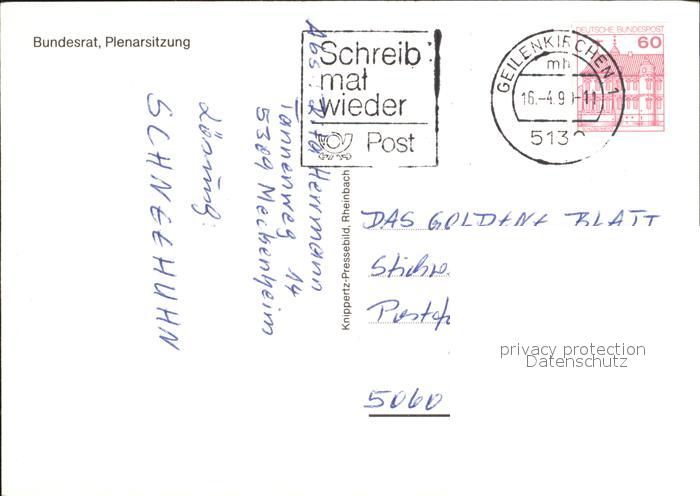 Bundesrat, Plenarsitzung
Schreib
mal
wieder
Post
GEILENKIRCHEN 1
mh
16.-4.9
-11
513
DEUTSCHE BUNDESPOST
60
Abs.: Rita Herrmann
Tannenweg 14
5309 Meckenheim
Lösung:
SCHNEEHUHN
Knippertz-Pressebild, Rheinbach
DAS GOLDENE BLATT
Stichw.
Postf
5060
privacy protection
Datenschutz